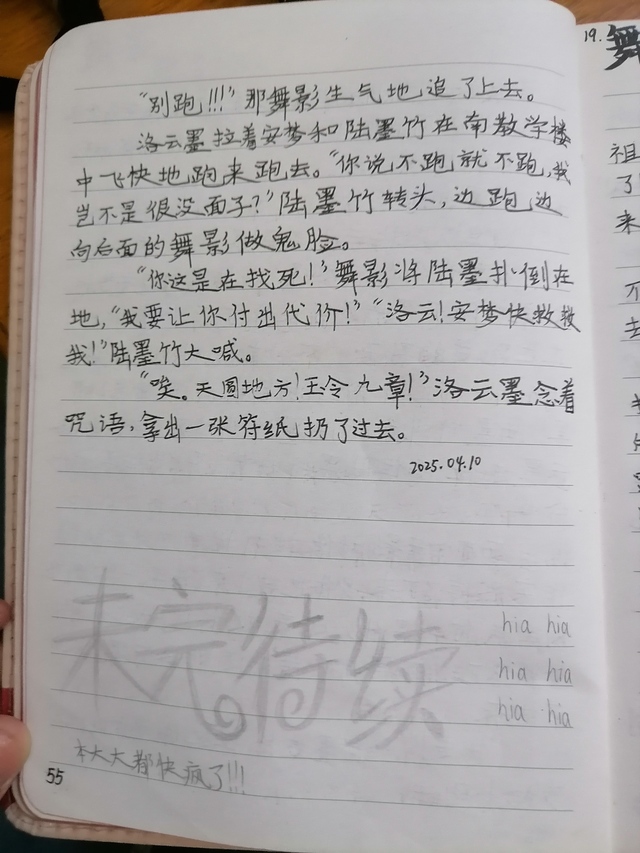 "别跑!!!"那舞影生气地追了上去。
洛云墨拉着安梦和陆墨竹在南教学楼
中飞快地跑来跑去。"你说不跑就不跑,我
岂不是很没面子?"陆墨竹转头,边跑边
向后面的舞影做鬼脸。
"你这是在找死!"舞影将陆墨扑倒在
地,"我要让你付出代价!""洛云!安梦快救救
我!"陆墨竹大喊。
"唉。天圆地方!王令九章!"洛云墨念着
咒语,拿出一张符纸扔了过去。
2025.04.10
未完待续
hia hia
hia hia
hia hia
本大大都快疯了!!!
55
19. 舞
祖
了
来
不
去